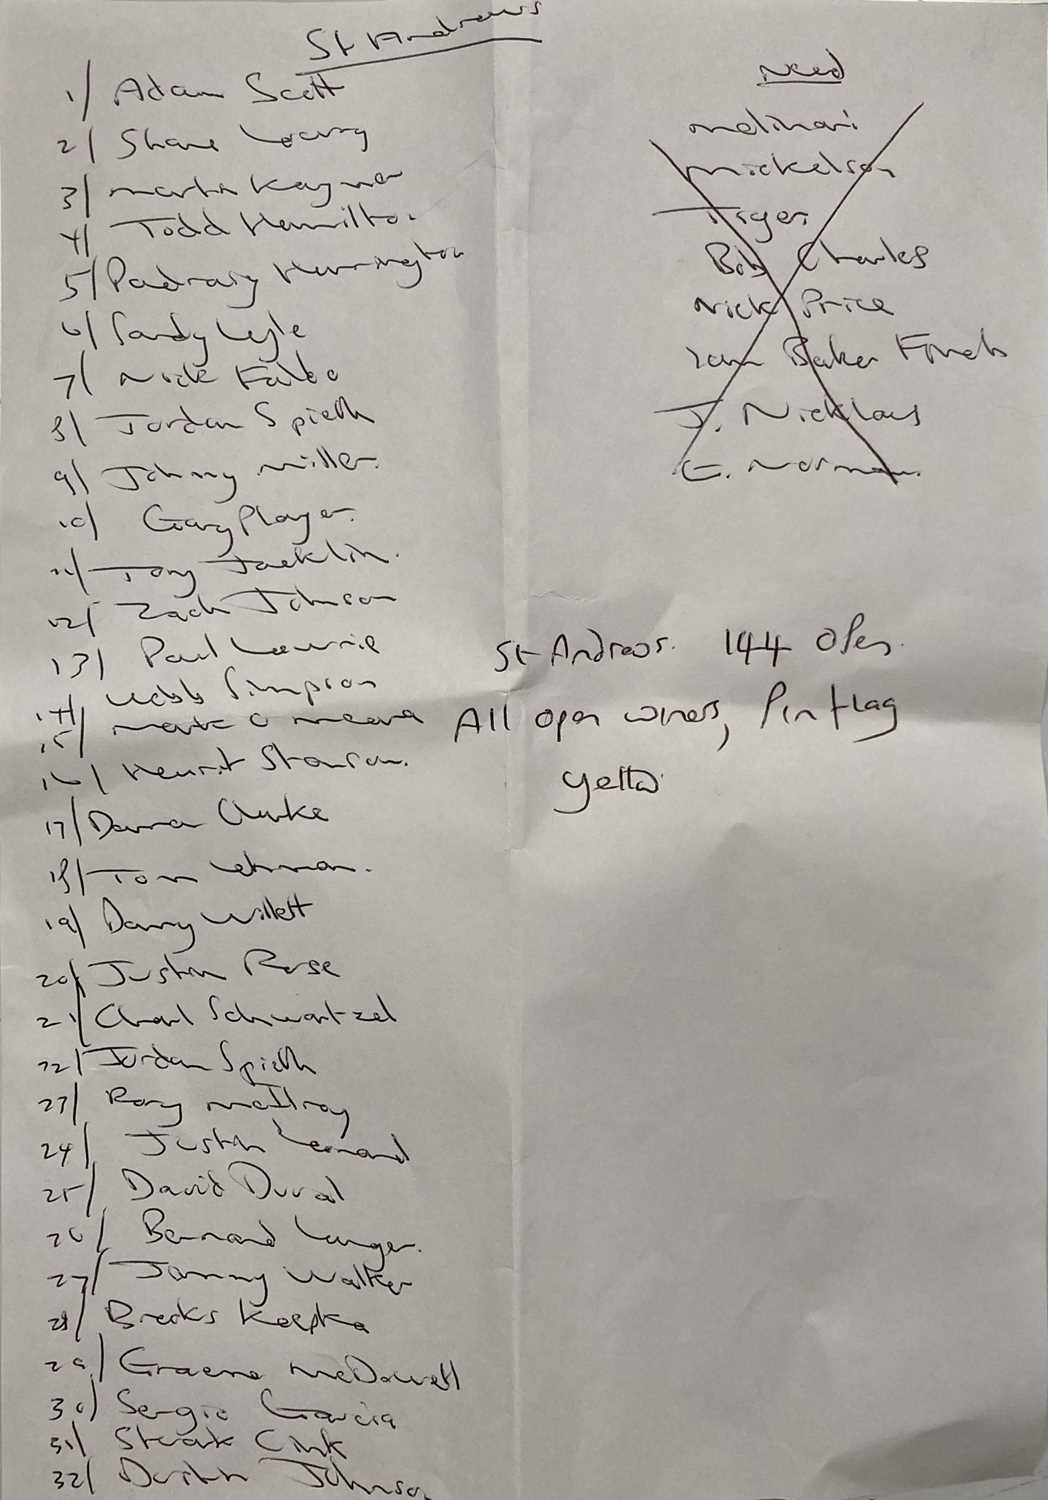 St Andrews
1/ Adam Scott
2/ Shane Lowry
3/ Martin Kaymer
4/ Todd Hamilton
5/ Padraig Harrington
6/ Sandy Lyle
7/ Nick Faldo
8/ Jordan Spieth
9/ Johnny Miller.
10/ Gary Player.
11/ Tony Jacklin.
12/ Zach Johnson
13/ Paul Lawrie
14/ Webb Simpson
15/ Mark O Meara
16/ Henrik Stenson.
17/ Darren Clarke
18/ Tom Lehman.
19/ Danny Willett
20/ Justin Rose
21/ Charl Schwartzel
22/ Jordan Spieth
23/ Rory McIlroy
24/ Justin Leonard
25/ David Duval
26/ Bernard Langer.
27/ Jammy Walker
28/ Brooks Koepka
29/ Graeme McDowell
30/ Sergio Garcia
31/ Stewart Cink
32/ Dustin Johnson
Need
Molinari
Mickelson
Tiger
Bob Charles
Nick Price
Ian Baker Finch
J. Nicklaus
G. Norman.
St Andrews. 144 Open.
All open winers, Pin flag
Yellow